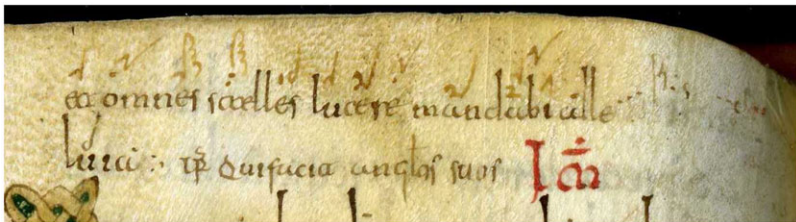 et omnes stelles lucere mandabi alle
luia : ꝟ Qui facit angłos suos I cā̇